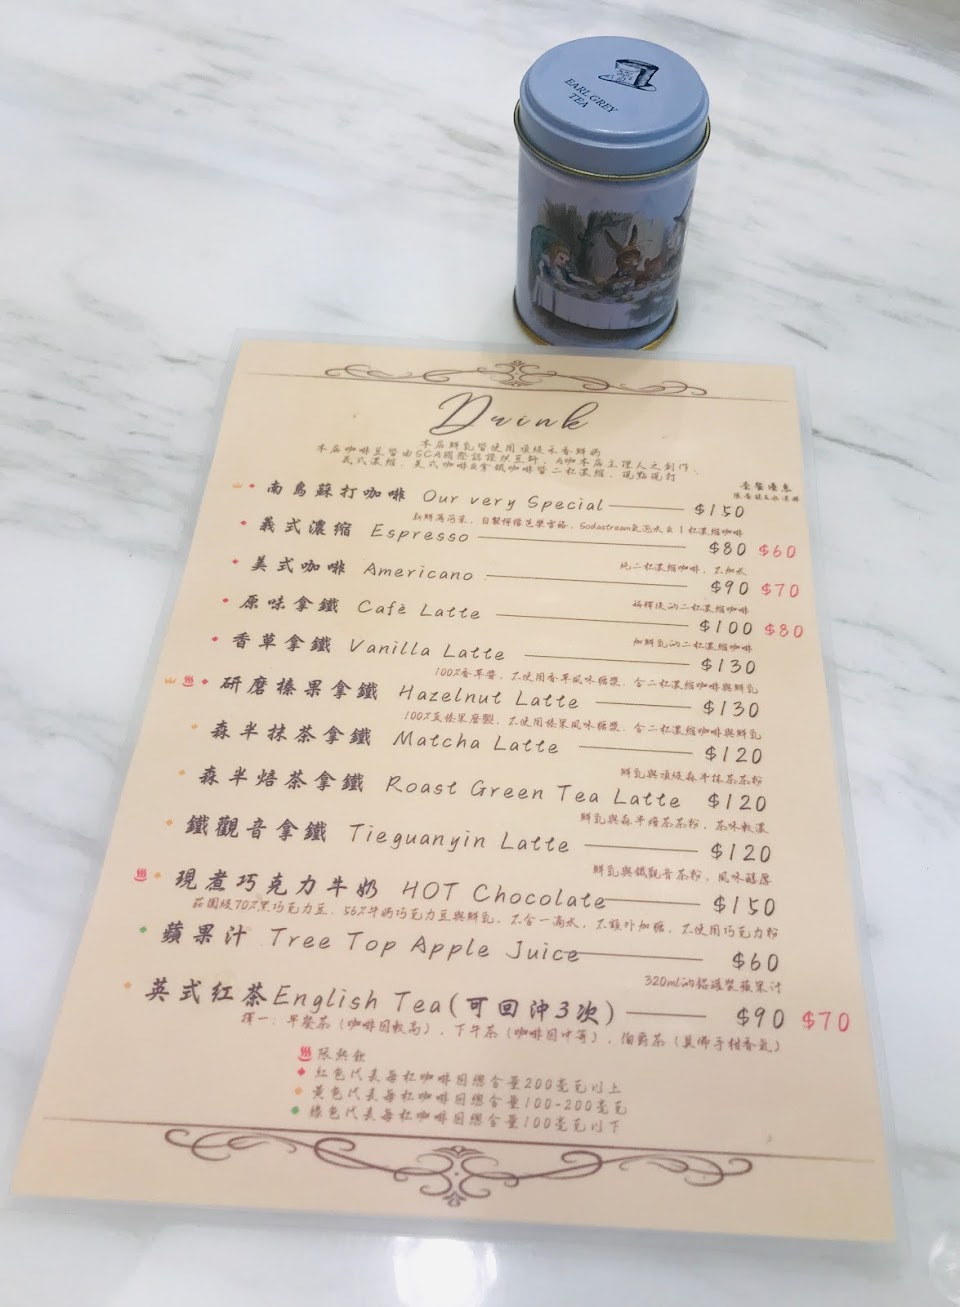 EARL GREY
TEA
Drink
本店鮮乳皆使用頂級禾香鮮奶
本店咖啡豆皆由SCA國際認證烘豆師,
義式濃縮、美式咖啡&拿鐵咖啡皆二杯濃縮,現點現打
套餐優惠
南島蘇打咖啡 Our very Special $150
義式濃縮 Espresso $80 $60
純二杯濃縮咖啡,不加水
美式咖啡 Americano $90 $70
稀釋後的二杯濃縮咖啡
原味拿鐵 Cafè Latte $100 $80
加鮮乳的二杯濃縮咖啡
香草拿鐵 Vanilla Latte $130
100%香草醬,不使用香草風味糖漿,含二杯濃縮咖啡與鮮乳
研磨榛果拿鐵 Hazelnut Latte $130
100%真榛果磨製,不使用榛果風味糖漿,含二杯濃縮咖啡與鮮乳
森半抹茶拿鐵 Matcha Latte $120
鮮乳與頂級森半抹茶茶粉
森半焙茶拿鐵 Roast Green Tea Latte $120
鮮乳與森半焙茶茶粉,茶味較濃
鐵觀音拿鐵 Tieguanyin Latte $120
鮮乳與鐵觀音茶粉,風味醇厚
現煮巧克力牛奶 HOT Chocolate $150
莊園級70%黑巧克力豆,56%牛奶巧克力豆與鮮乳,不含一滴水,不額外加糖,不使用巧克力粉
蘋果汁 Tree Top Apple Juice $60
320ml的鋁罐裝蘋果汁
英式紅茶English Tea(可回沖3次) $90 $70
擇一:早餐茶(咖啡因較高),下午茶(咖啡因中等),伯爵茶(具佛手柑香氣)
限熱飲
紅色代表每杯咖啡因總含量200毫克以上
黃色代表每杯咖啡因總含量100-200毫克
綠色代表每杯咖啡因總含量100毫克以下